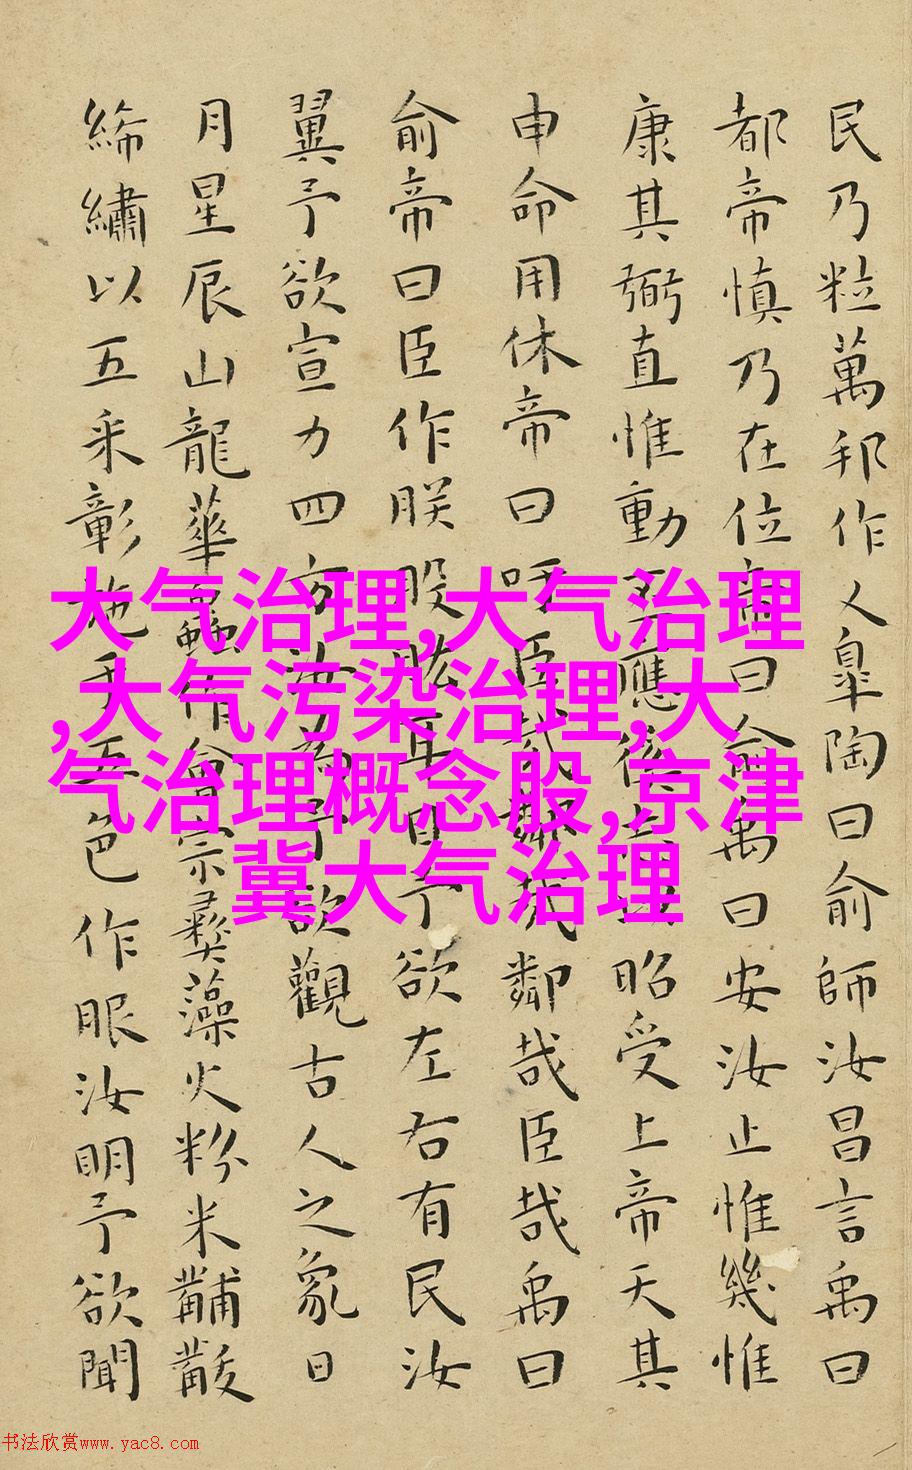 民乃粒萬邦作乂皐陶曰俞師汝昌言禹曰
都帝慎乃在位帝曰俞禹曰安汝止惟幾惟
康其弼直惟動丕應徯志以昭受上帝天其
申命用休帝曰吁臣哉鄰哉鄰哉臣哉禹曰
俞帝曰臣作朕股肱耳目予欲左右有民汝
翼予欲宣力四方汝為予欲觀古人之象日
月星辰山龍華蟲作會宗彝藻火粉米黼黻
絺繡以五采彰施于五色作服汝明予欲聞
大气治理,大气治理
,大气污染治理,大
气治理概念股,京津
冀大气治理
书法欣赏www.yac8.com